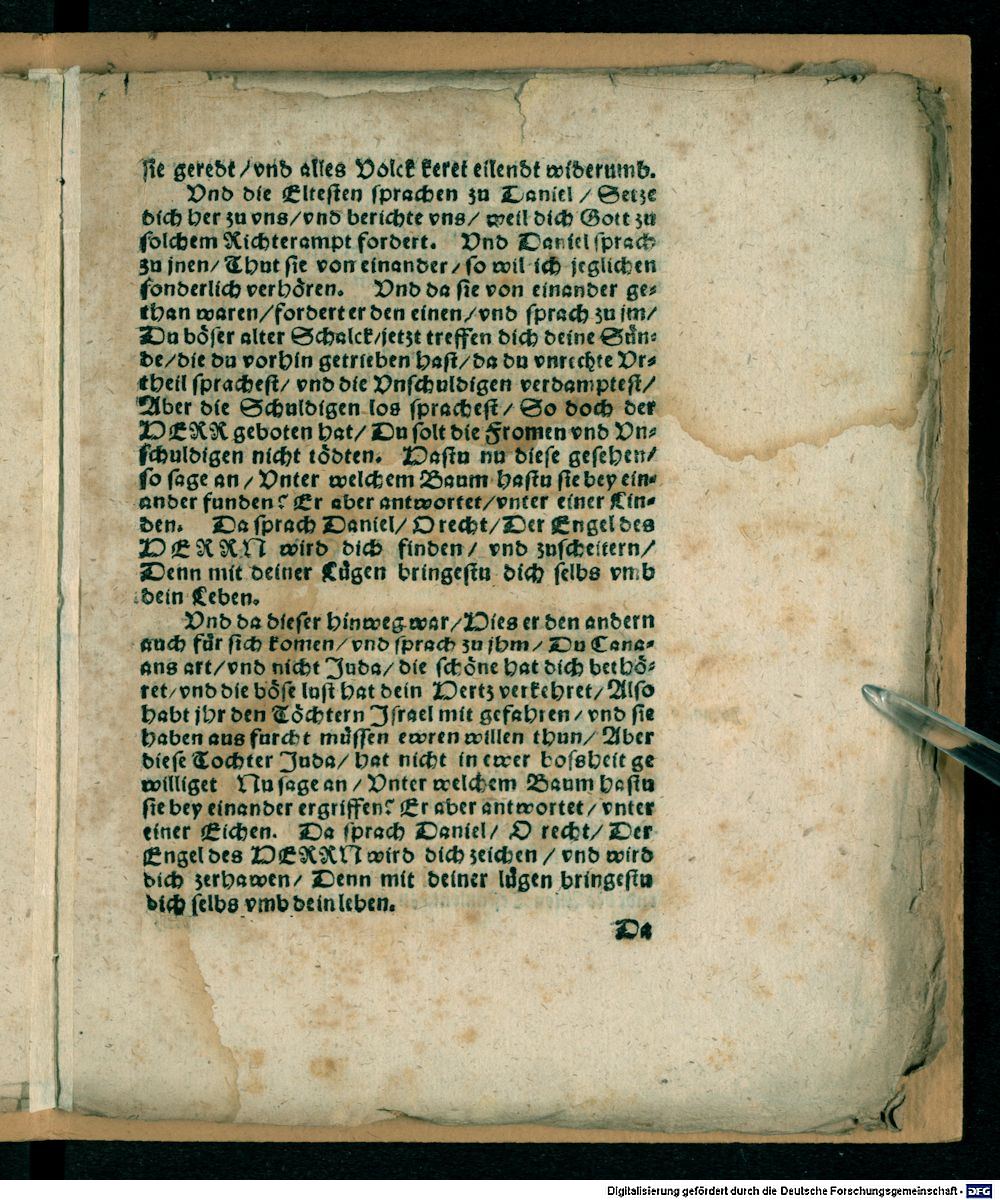 sie geredt / vnd alles Volck keret eilendt widerumb.
Vnd die Eltesten sprachen zu Daniel / Setze
dich her zu vns / vnd berichte vns / weil dich Gott zu
solchem Richterampt fordert. Vnd Daniel sprach
zu jnen / Thut sie von einander / so wil ich jeglichen
sonderlich verhören. Vnd da sie von einander ge⸗
than waren / fordert er den einen / vnd sprach zu jm /
Du böser alter Schalck / jetzt treffen dich deine Sün⸗
de / die du vorhin getrieben hast / da du vnrechte Vr⸗
theil sprachest / vnd die Vnschuldigen verdamptest /
Aber die Schuldigen los sprachest / So doch der
HERR geboten hat / Du solt die Fromen vnd Vn⸗
schuldigen nicht tödten. Hastu nu diese gesehen /
so sage an / Vnter welchem Baum hastu sie bey ein⸗
ander funden? Er aber antwortet / vnter einer Lin⸗
den. Da sprach Daniel / O recht / Der Engel des
HERRN wird dich finden / vnd zuscheitern /
Denn mit deiner Lügen bringestu dich selbs vmb
dein Leben.
Vnd da dieser hinweg war / Hies er den andern
auch für sich komen / vnd sprach zu jhm / Du Cana⸗
ans art / vnd nicht Juda / die schöne hat dich bethö⸗
ret / vnd die böse lust hat dein Hertz verkehret / Also
habt jhr den Töchtern Jsrael mit gefahren / vnd sie
haben aus furcht müssen ewren willen thun / Aber
diese Tochter Juda / hat nicht in ewer bossheit ge
williget Nu sage an / Vnter welchem Baum hastu
sie bey einander ergriffen? Er aber antwortet / vnter
einer Eichen. Da sprach Daniel / O recht / Der
Engel des HERRN wird dich zeichen / vnd wird
dich zerhawen / Denn mit deiner lügen bringestu
dich selbs vmb dein leben.
Da
Digitalisierung gefördert durch die Deutsche Forschungsgemeinschaft - DFG